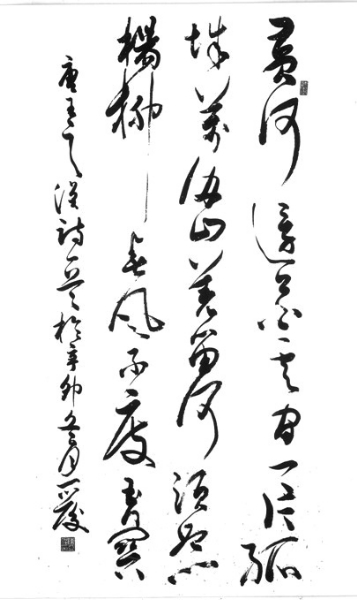 黄河遠上白雲间一片孤
城萬仞山羌笛何須怨
楊柳春风不度玉门関
唐王之渙詩一首於辛卯冬月